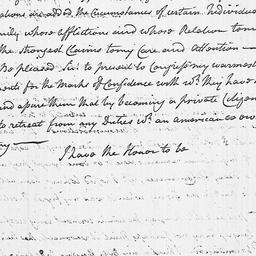 above are added the circumstances of certain Individuals
family whose afflictions and whose Relation to me
the strongest Claims to my Care and Attention —
Be pleased Sir: to present to Congress my warmest
for the Mark of Confidence with wh. they have
and assure them that by becoming a private Citizen
to retreat from any Duties wh. an american co ow
ry —
I have the Honor to be